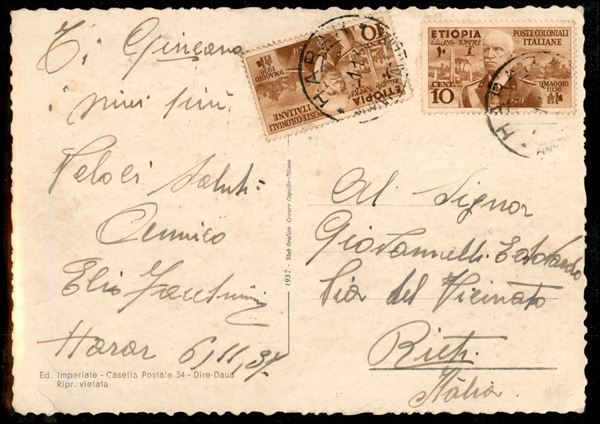 Ti Giungano
i miei più
Veloci Saluti
Amico
Elio
Harar 6/11 37
Ed. Imperiale - Casella Postale 54 - Dire-Daua
Ripr. vietata
1937 - Stab Grafico Cesare Capello-Milano
10 CENT.
ETIOPIA
9 MAGGIO 1936
POSTE COLONIALI
ITALIANE
HARAR
ETIOPIA
POSTE COLONIALI
ITALIANE
9 MAGGIO
1936
CENT.
10
HARAR
Al Signor
Giovannelli Edoardo
Via del Vicinato
Rieti
Italia